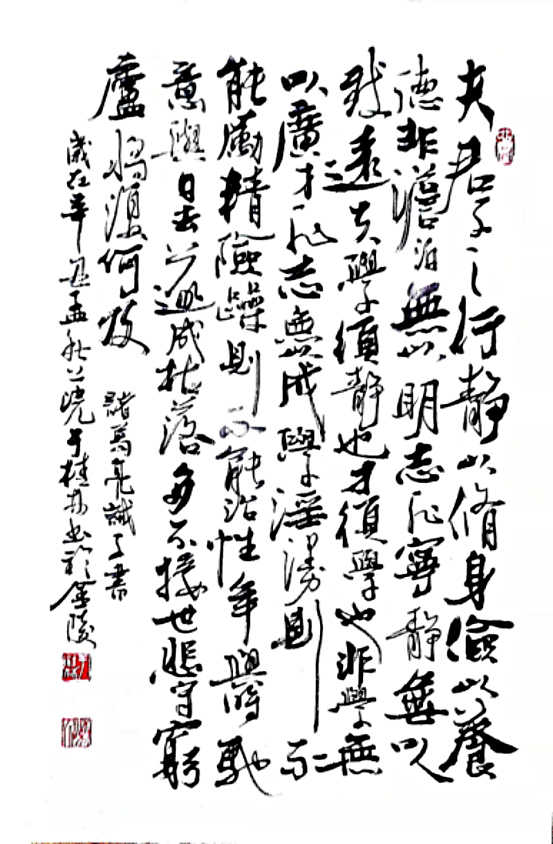 夫君子之行靜以脩身儉以養
德非澹泊無以明志非寧靜無以
致遠夫學須靜也才須學也非學無
以廣才非志無以成學淫漫則不
能勵精險躁則不能治性年與時馳
意與日去遂成枯落多不接世悲守窮
廬將復何及
諸葛亮誡子書
歲在辛丑孟秋桂林書於金陵